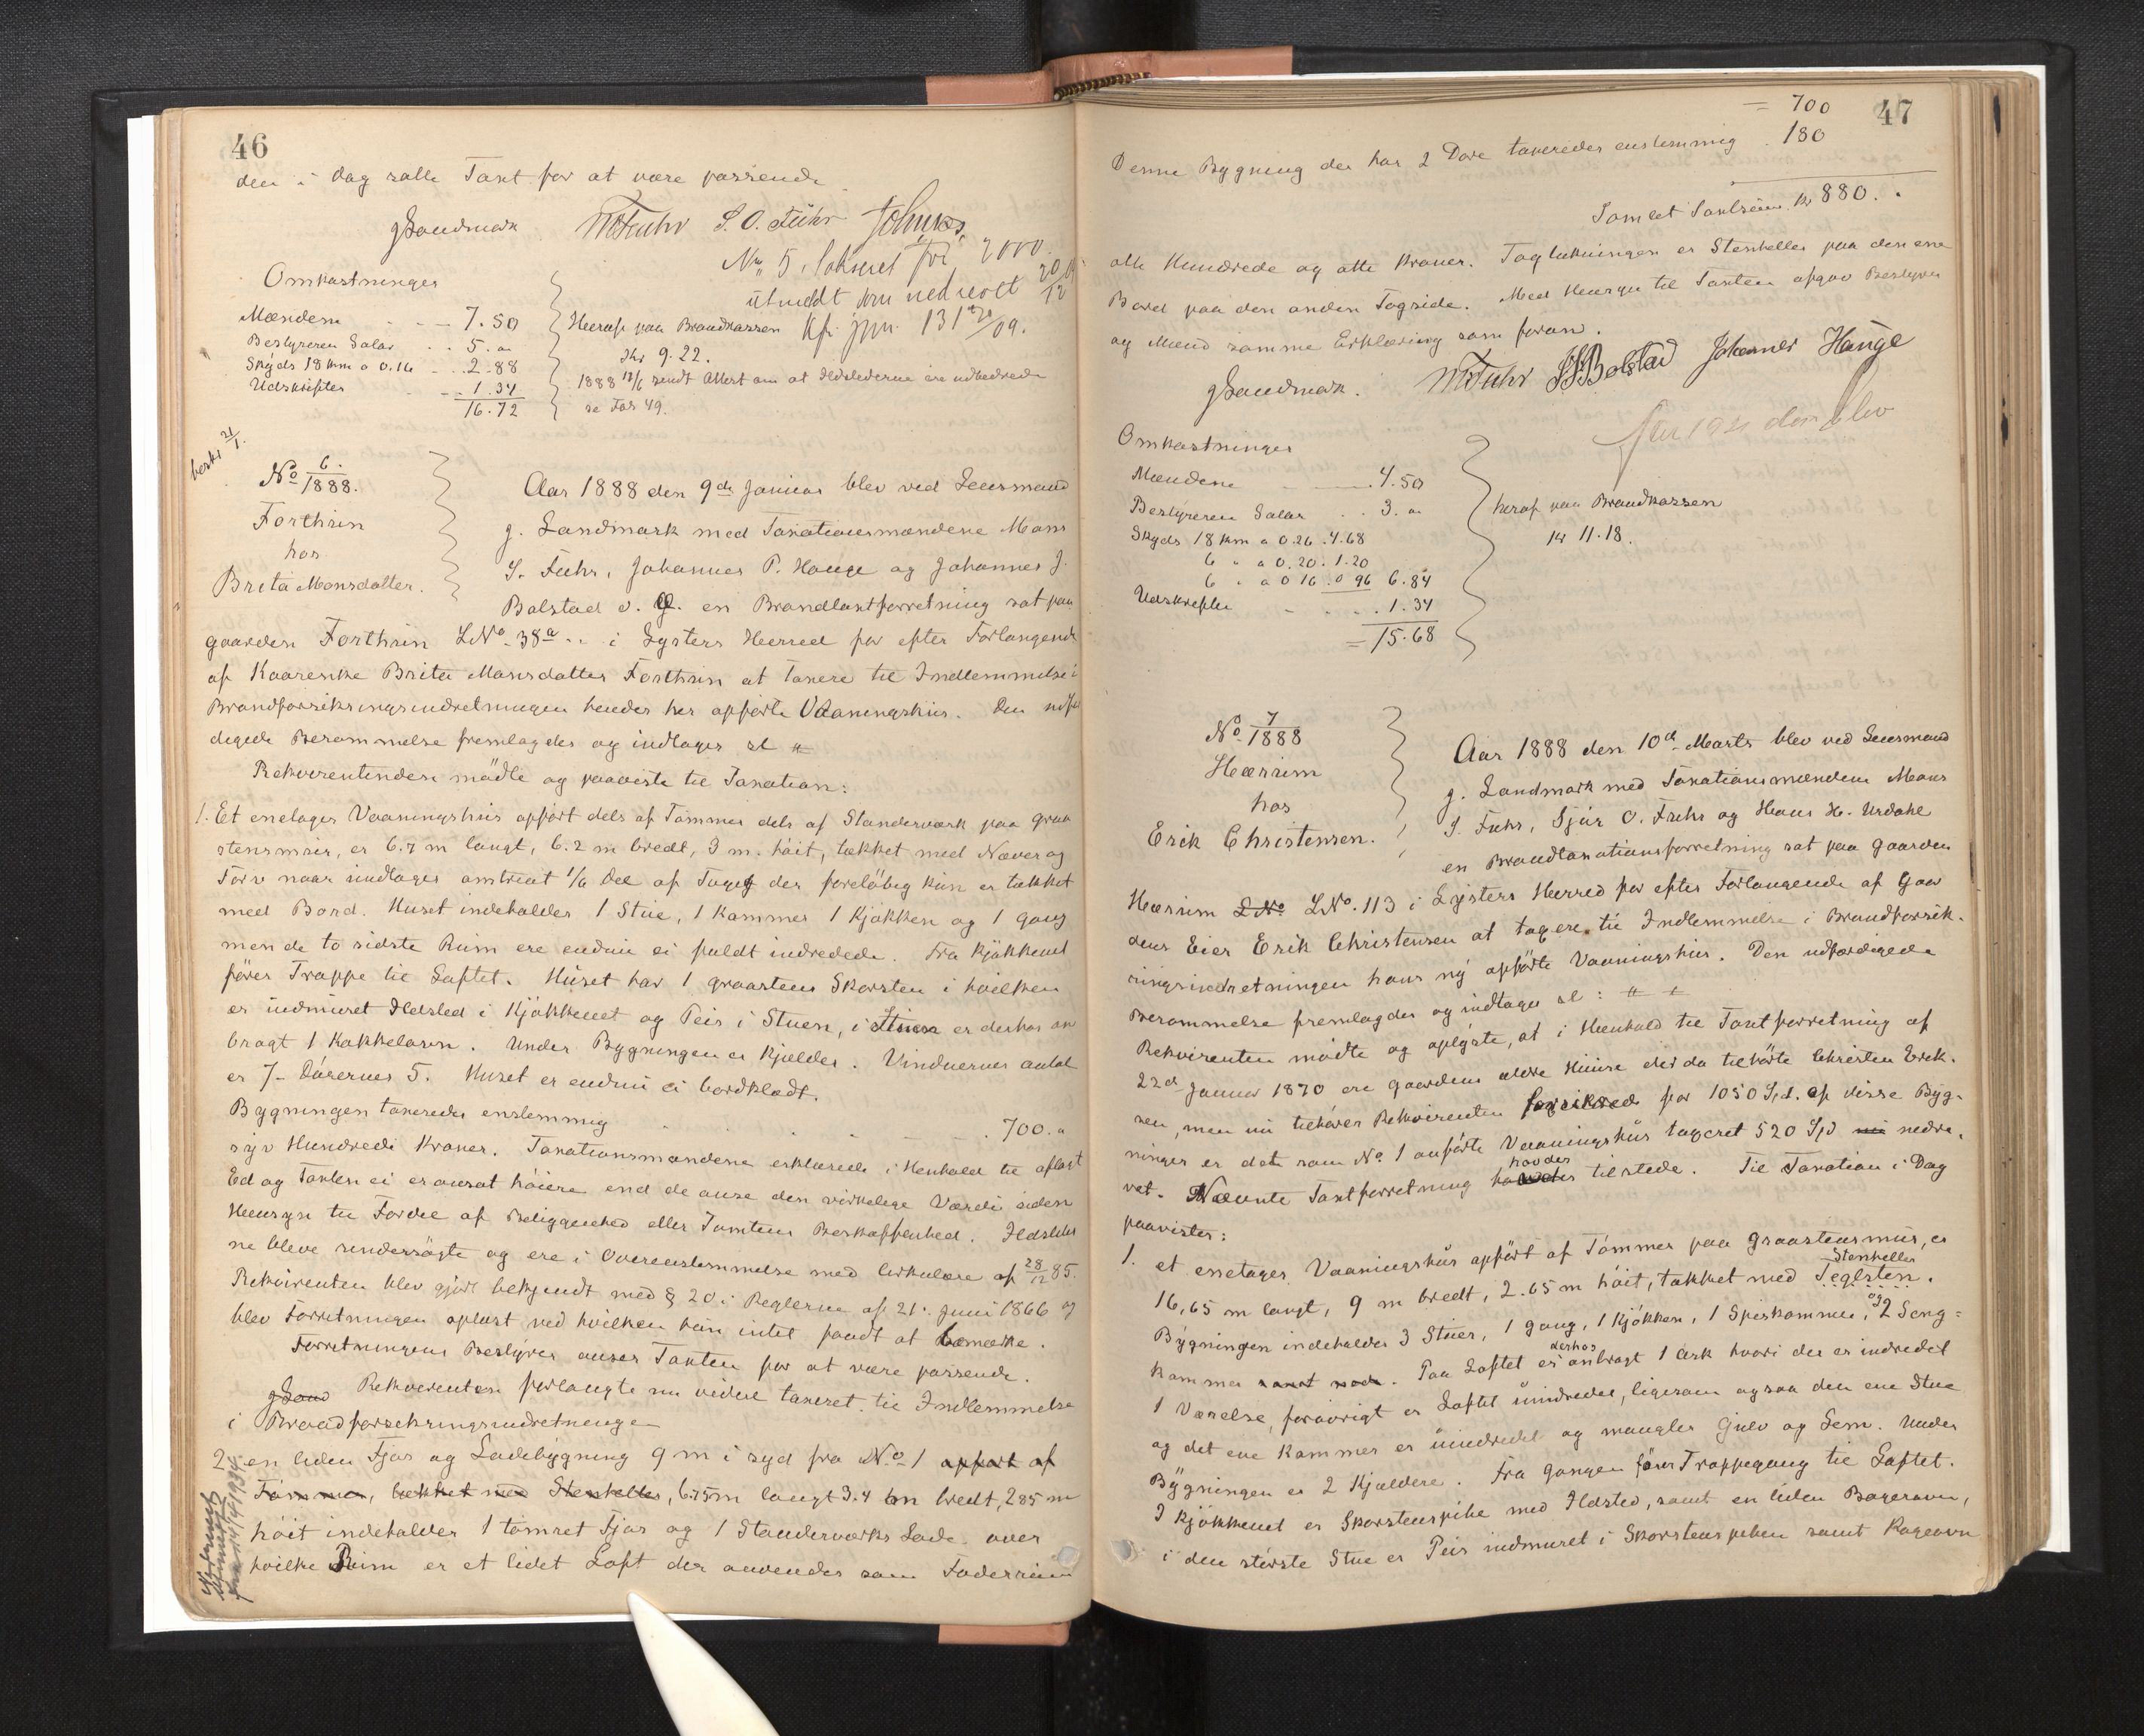 46
den i dag satte Taxt for at være passende
gLandmark MSFuhr S. O. Fuhr
No 5. takseret for 2000
utmeldt som nedrevet 20/12 09
Kfr. jpn. 131 09.
Omkostninger
Mændene 7.50
Bestyreren Salær 5. "
Skyds 18 km a 0.16 2.88
Udskrifter 1.34
16.72
Heraf paa Brandkassen
Kr 9.22.
1888 18/6 sendt Attest om at Ildstederne ere udbedrede
se Fol 49.
besk. 21/1.
No 6./1888.
Forthun
hos
Brita Monsdatter.
Aar 1888 den 9de Januar blev ved Lensmand
g. Landmark med Taxationsmændene Mons
S. Fuhr, Johannes P. Hauge og Johannes J.
Bolstad o. Y. en Brandtaxtforretning sat paa
gaarden Forthun LNo 38a i Lysters Herred for efter Forlangende
af Kaarenke Brita Monsdatter Forthun at taxere til Indlemmelse i
Brandforsikringsindretningen hendes her opførte Vaaningshus. Den udfær
digede Berammelse fremlagdes og indtages sl "
Rekvirentinden mødte og paaviste til Taxation:
1. Et enetages Vaaningshus opført dels af Tømmer dels af Standerværk paa graa
stensmur, er 6.7 m langt, 6.2 m bredt, 3 m. høit, tækket med Næver og
Torv naar undtages omtrent 1/6 Del af Taget der foreløbig kun er tækket
med Bord. Huset indeholder 1 Stue, 1 Kammer 1 Kjøkken og 1 gang
men de to sidste Rum ere endnu ei fuldt indredede. Fra Kjøkkenet
fører Trappe til Loftet. Huset har 1 graastens Skorsten i hvilken
er indmuret Ildsted i Kjøkkenet og Peis i Stuen, i Stuen er derhos an
bragt 1 Kakkelovn. Under Bygningen er Kjælder. Vinduernes antal
er 7 - Dørernes 5. Huset er endnu ei bordklædt.
Bygningen taxeredes enstemmig 700. "
syv Hundrede Kroner. Taxationsmændene erklærede i Henhold til aflagt
Ed og Taxten ei er ansat høiere end de anse den virkelige Værdi uden
Hensyn til Fordel af Beliggenhed eller Tomtens Beskaffenhed. Ildstede
ne bleve undersøgte og ere i Overensstemmelse med Cirkulære af 28/12 85.
Rekvirenten blev gjort bekjendt med § 20 i Reglerne af 21. Juni 1866 og
blev Forretningen oplæst ved hvilken hun intet fandt at bemærke.
Forretningens Bestyrer anser Taxten for at være passende.
gLand Rekvirenten forlangte nu videre taxeret til Indlemmelse
i Brandforsikringsindretningen
2. en liden Fjøs og Ladebygning 9 m i syd fra No 1 opført af
Tømmer, tækket med Stenheller, 6.75m langt 3.4 m bredt, 2.85 m
høit indeholder 1 tømret Fjøs og 1 Standerværks Lade over
hvilke Rum er et lidet Loft der anvendes som Foderrum
14/4 1934
= 700 47
Denne Bygning der har 2 Døre taxeredes enstemmig 180
Samlet Taxtsum kr 880. "
otte Hundrede og otti Kroner. Taglækningen er Stenheller paa den ene
Bord paa den anden Tagside. Med Hensyn til Taxten afgav Bestyrer
og Mænd samme Erklæring som foran.
gLandmark. MSFuhr JJBolstad Johannes Hauge
Omkostninger
Mændene 4.50
Bestyreren Salær 3. "
Skyds 18 km a 0.26 . 4.68
6 " a 0.20 . 1.20
6 " a 0 16 . 0 96 6.84
Udskrifter 1.34
= 15.68
heraf paa Brandkassen
kr 11.18.
No 7/1888
Hæsrim
hos
Erik Christensen.
Aar 1888 den 10de Marts blev ved Lensmand
g. Landmark med Taxationsmændene Mons
S. Fuhr, Sjur O. Fuhr og Hans H. Urdahl
en Brandtaxationsforretning sat paa gaarden
Hæsrim LNo LNo. 113 i Lysters Herred for efter Forlangende af Gaar
dens Eier Erik Christensen at taxere til Indlemmelse i Brandforsik-
ringsindretningen hans ny opførte Vaaningshus. Den udfærdigede
Berammelse fremlagdes og indtages sl : "
Rekvirenten mødte og oplyste, at i Henhold til Taxtforretning af
22de Januar 1870 ere gaardens ældre Huse der da tilhørte Christen Erik-
sen, men nu tilhører Rekvirenten forsikred for 1050 Spd. af disse Byg-
ninger er det som No 1 anførte Vaaningshus taxeret 520 Spd nu nedre-
vet. Nævnte Taxtforretning havdes tilstede. Til Taxation i Dag
paavistes:
1. et enetages Vaaningshus opført af Tømmer paa Graastensmur, er
16,65 m langt, 9 m bredt, 2.65 m høit, tækket med Teglsten. Stenheller
Bygningen indeholder 3 Stuer, 1 gang, 1 Kjøkken, 1 Spiskammer, og 2 Seng=
kammer samt . Paa Loftet er derhos anbragt 1 Ark hvori der er indredet
1 Værelse, forøvrigt er Loftet uindredet, ligesom ogsaa den ene Stue
og det ene Kammer er uindredet og mangler Gulv og Lem. Under
Bygningen er 2 Kjældere. Fra gangen fører Trappegang til Loftet.
I Kjøkkenet er Skorstenspibe med Ildsted, samt en liden Bagerovn,
i den største Stue er Peis indmuret i Skorstenspiben samt Kogeovn